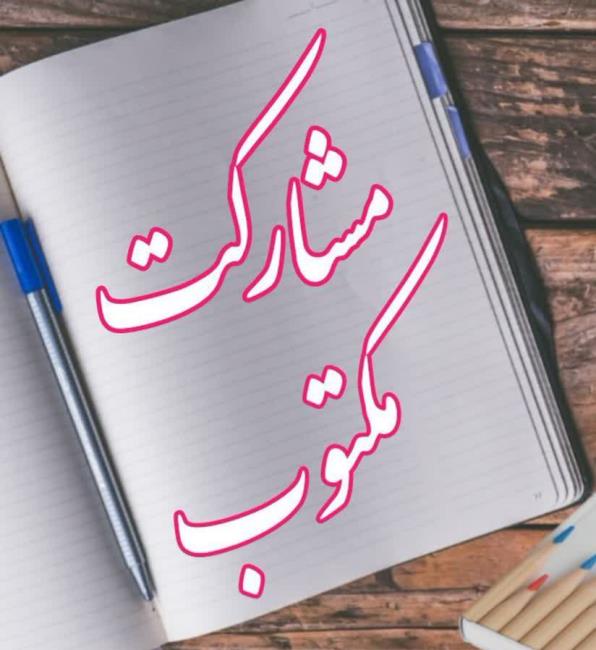 مشارکت
مکتوب